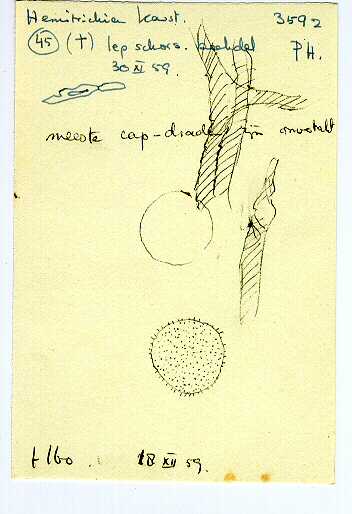 Hemitrichia karst. 3592
45 (†) iep schors. PH.
30 XI 59.
meeste cap-draden zijn onvertakt
t 160. 18 XII 59.